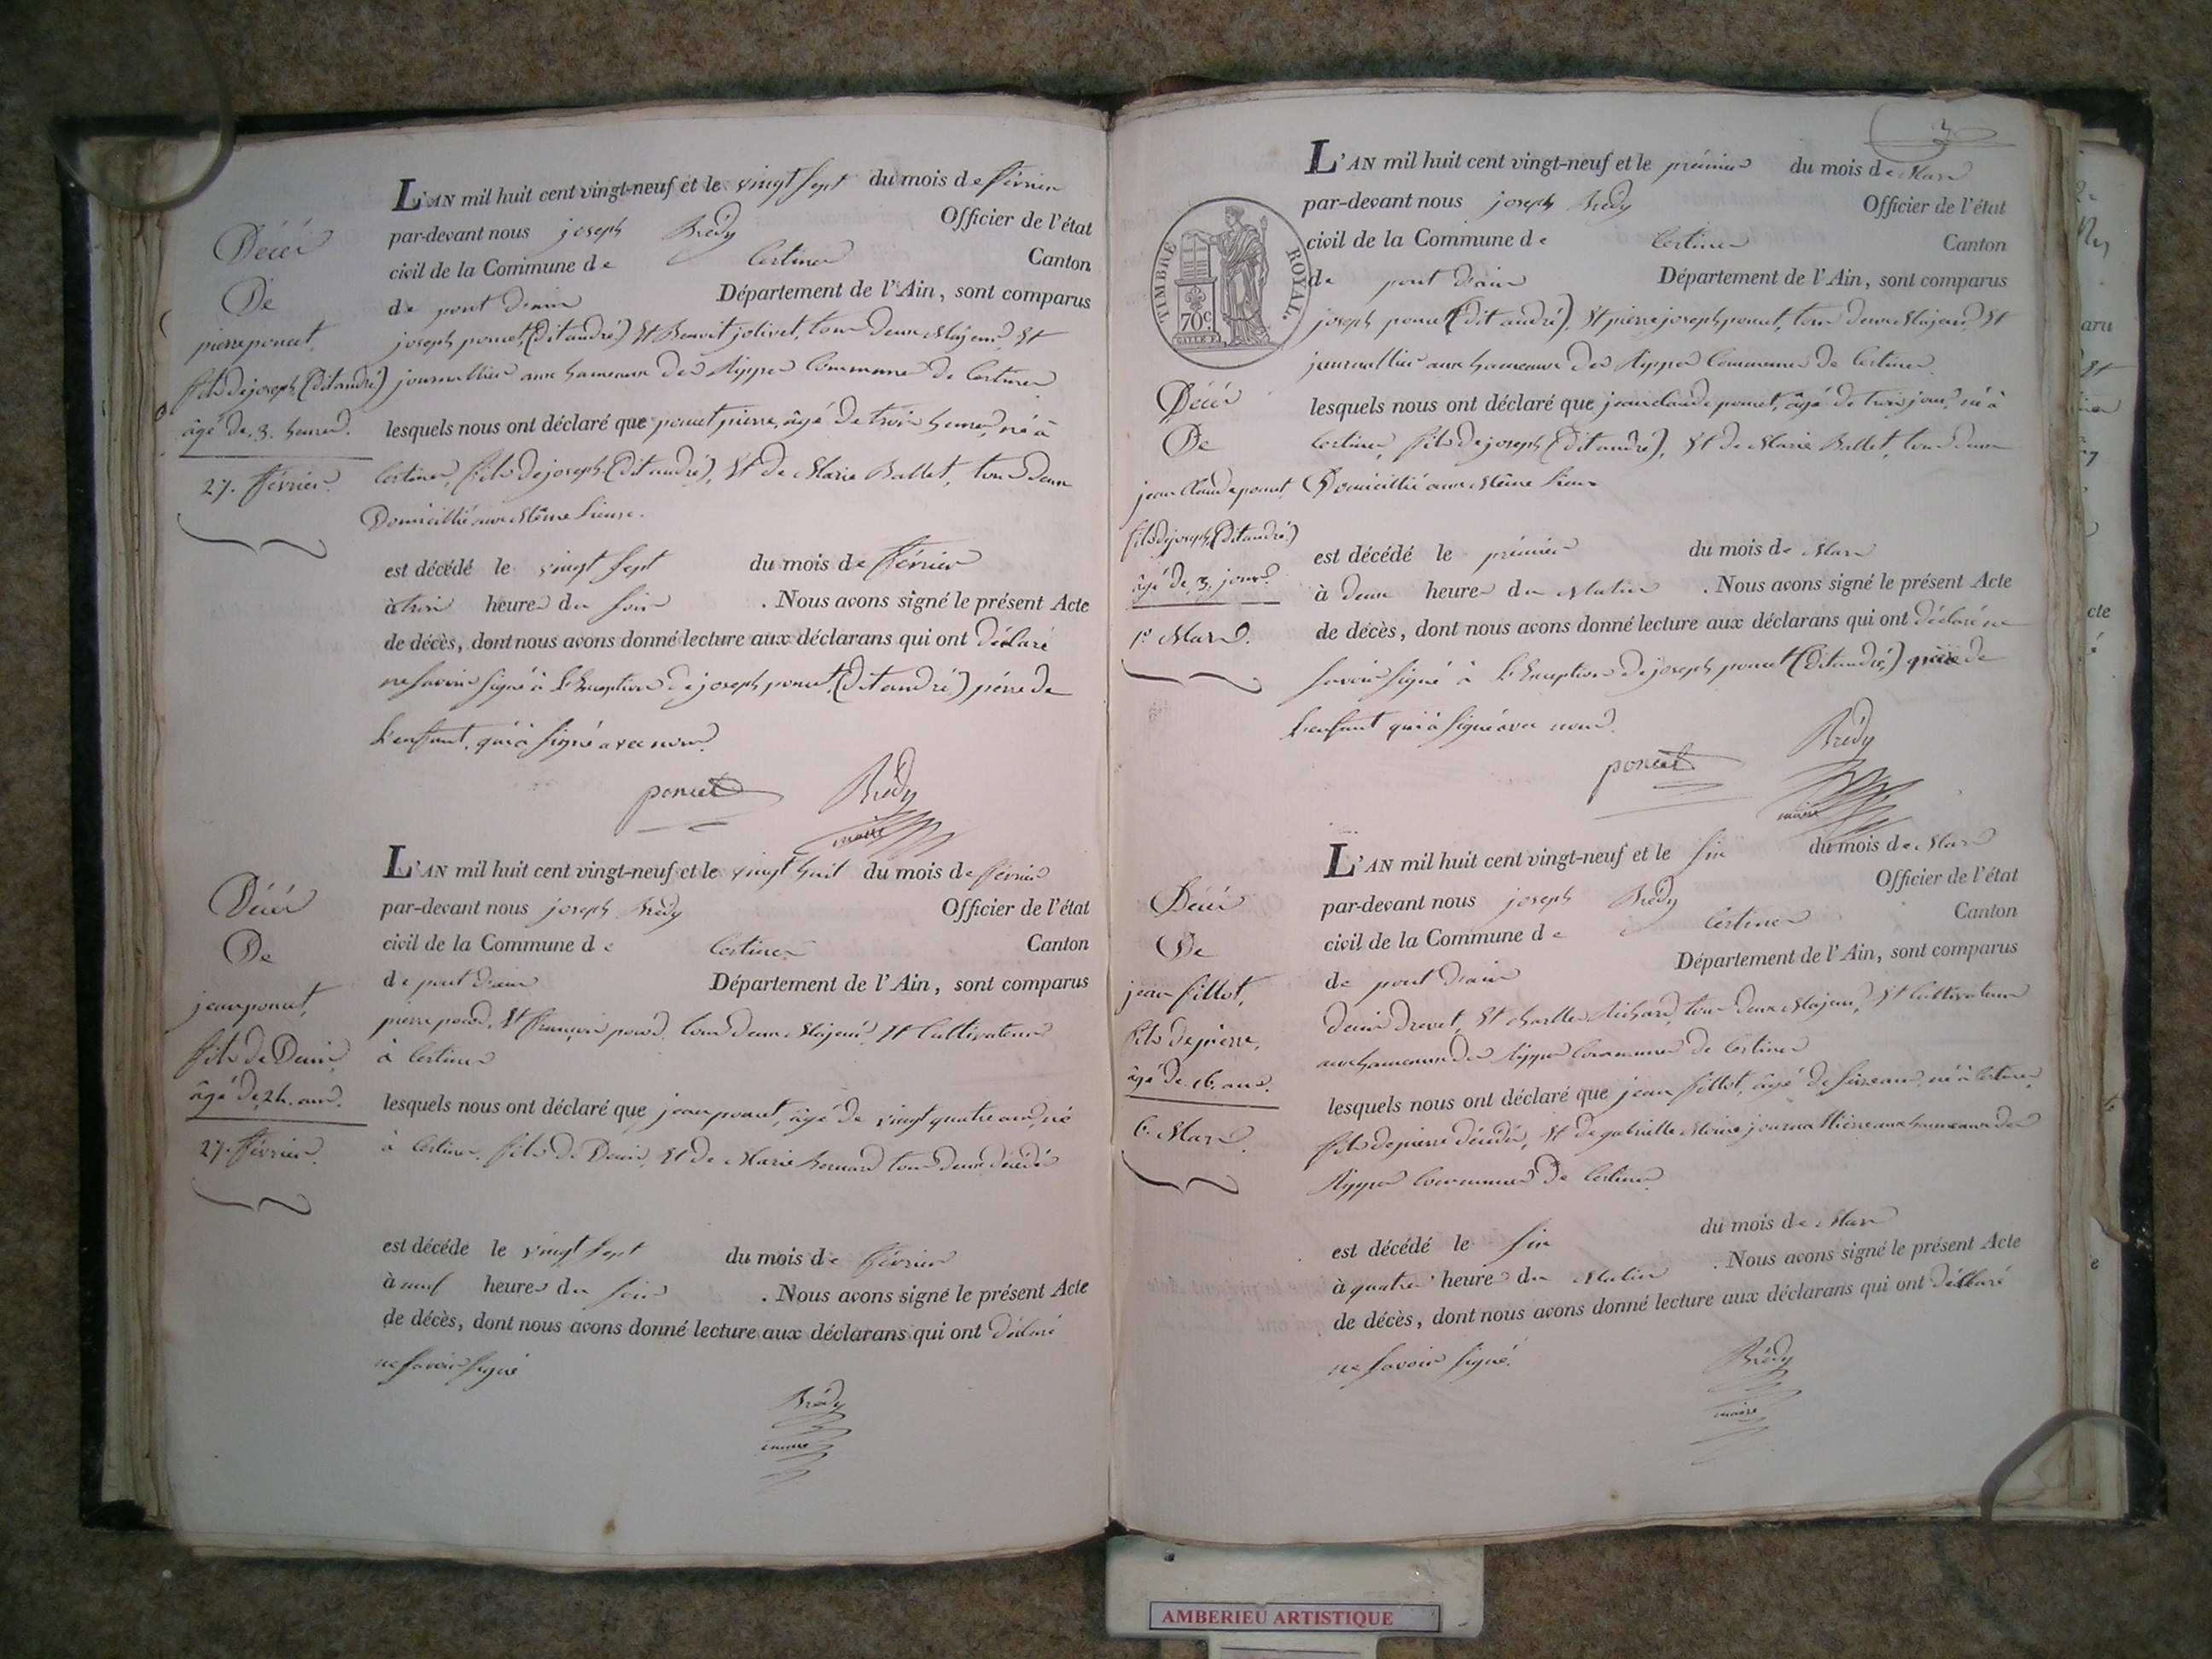 Décès
De
pierre poncet,
fils de joseph (dit andré)
âgé de, 3. heures.
27. février.
L'AN mil huit cent vingt-neuf et le vingt sept du mois de février
par-devant nous joseph Brédy Officier de l'état
civil de la Commune de Certines Canton
de pont d'ain Département de l'Ain, sont comparus
joseph poncet, (dit andré) Et Benoit jolivet, tous deux Majeurs, Et
journalliers aux hameaux des Rippes Commune de Certines
lesquels nous ont déclaré que poncet pierre, âgé de trois heures, né à
Certines, fils de joseph (dit andré), Et de Marie Ballet, tous deux
Domicillié aux Même Lieux.
est décédé le vingt sept du mois de février
à trois heures du soir . Nous avons signé le présent Acte
de décès, dont nous avons donné lecture aux déclarans qui ont déclaré
ne savoir signé à l'Exception de joseph poncet (dit andré) père de
L'enfant, qui à signé avec nous.
poncet Brédy
maire
Décès
De
jean poncet,
fils de Denis,
âgé de, 24. ans.
27. février.
L'AN mil huit cent vingt-neuf et le vingt huit du mois de février
par-devant nous joseph Brédy Officier de l'état
civil de la Commune de Certines Canton
de pont d'ain Département de l'Ain, sont comparus
pierre Et françois tous deux Majeurs, Et Cultivateurs
à Certines
lesquels nous ont déclaré que jean poncet, âgé de vingt quatre ans, né
à Certines, fils de Denis, Et de Marie Bernard tous deux décédés
est décédé le vingt sept du mois de février
à neuf heures du soir . Nous avons signé le présent Acte
de décès, dont nous avons donné lecture aux déclarans qui ont déclaré
ne savoir signé
Brédy
maire
3
TIMBRE ROYAL.
70c
Décès
De
jean Claude poncet,
fils de joseph (dit andré)
âgé de, 3. jours.
1er Mars.
L'AN mil huit cent vingt-neuf et le prémier du mois de Mars
par-devant nous joseph Brédy Officier de l'état
civil de la Commune de Certines Canton
de pont d'ain Département de l'Ain, sont comparus
joseph poncet (dit andré), Et pierre joseph poncet, tous deux Majeurs, Et
journalliers aux hameaux des Rippes Commune de Certines
lesquels nous ont déclaré que jean claude poncet, âgé de trois jours, né à
Certines, fils de joseph (dit andré), Et de Marie Ballet, tous deux
Domicillié aux Même Lieux
est décédé le prémier du mois de Mars
à deux heures du Matin . Nous avons signé le présent Acte
de décès, dont nous avons donné lecture aux déclarans qui ont déclaré ne
savoir signé à L'Exception de joseph poncet (dit andré) père de
L'enfant qui à signé avec nous.
poncet Brédy
maire
Décès
De
jean fillot,
fils de pierre,
âgé de 16. ans.
6. Mars.
L'AN mil huit cent vingt-neuf et le six du mois de Mars
par-devant nous joseph Brédy Officier de l'état
civil de la Commune de Certines Canton
de pont d'ain Département de l'Ain, sont comparus
Denis Drevet, Et Charlles Richard, tous deux Majeurs, Et Cultivateurs
aux hameaux des Rippes Commune de Certines
lesquels nous ont déclaré que jean fillot, âgé de seize ans, né à Certines,
fils de pierre décédés, Et de gabrielle journallière aux hameaux des
Rippes Commune de Certines
est décédé le six du mois de Mars
à quatre heures du Matin . Nous avons signé le présent Acte
de décès, dont nous avons donné lecture aux déclarans qui ont déclaré
ne savoir signé.
Brédy
maire
AMBERIEU ARTISTIQUE